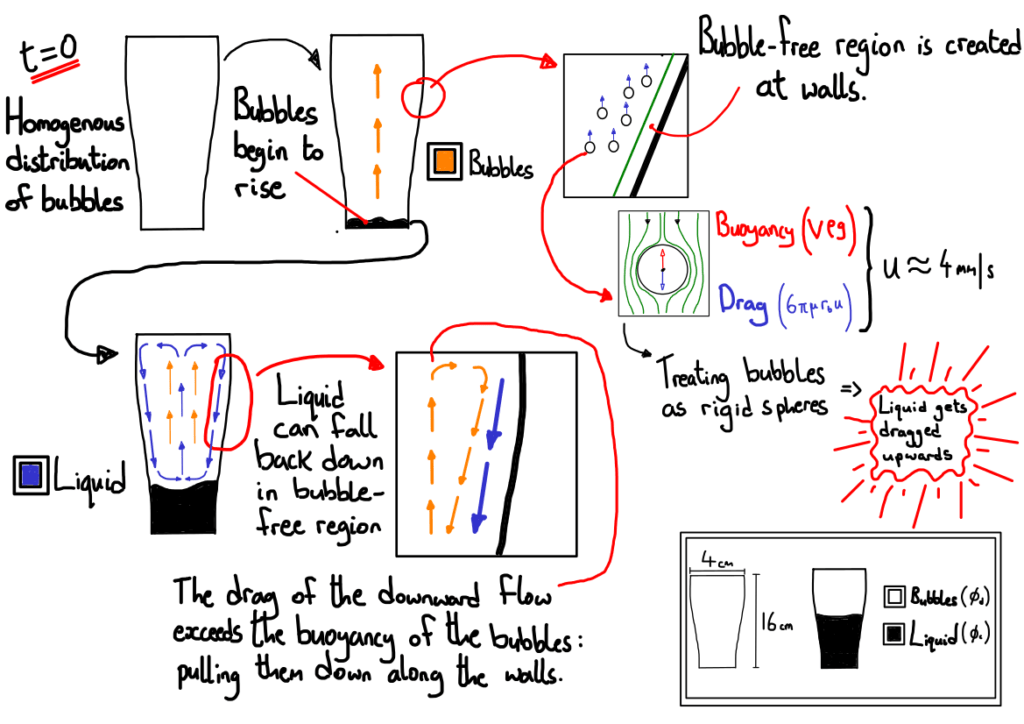 t=0
Homogenous
distribution
of bubbles
Bubbles
begin to
rise
Bubbles
Bubble-free region is created
at walls.
Buoyancy (Vρg)
Drag (6πμr₀u)
u ≈ 4mm/s
Treating bubbles
as rigid spheres
=>
Liquid gets
dragged
upwards
Liquid
Liquid
can fall
back down
in bubble-
free region
The drag of the downward flow
exceeds the buoyancy of the bubbles:
pulling them down along the walls.
4cm
16cm
Bubbles (ϕd)
Liquid (ϕc)